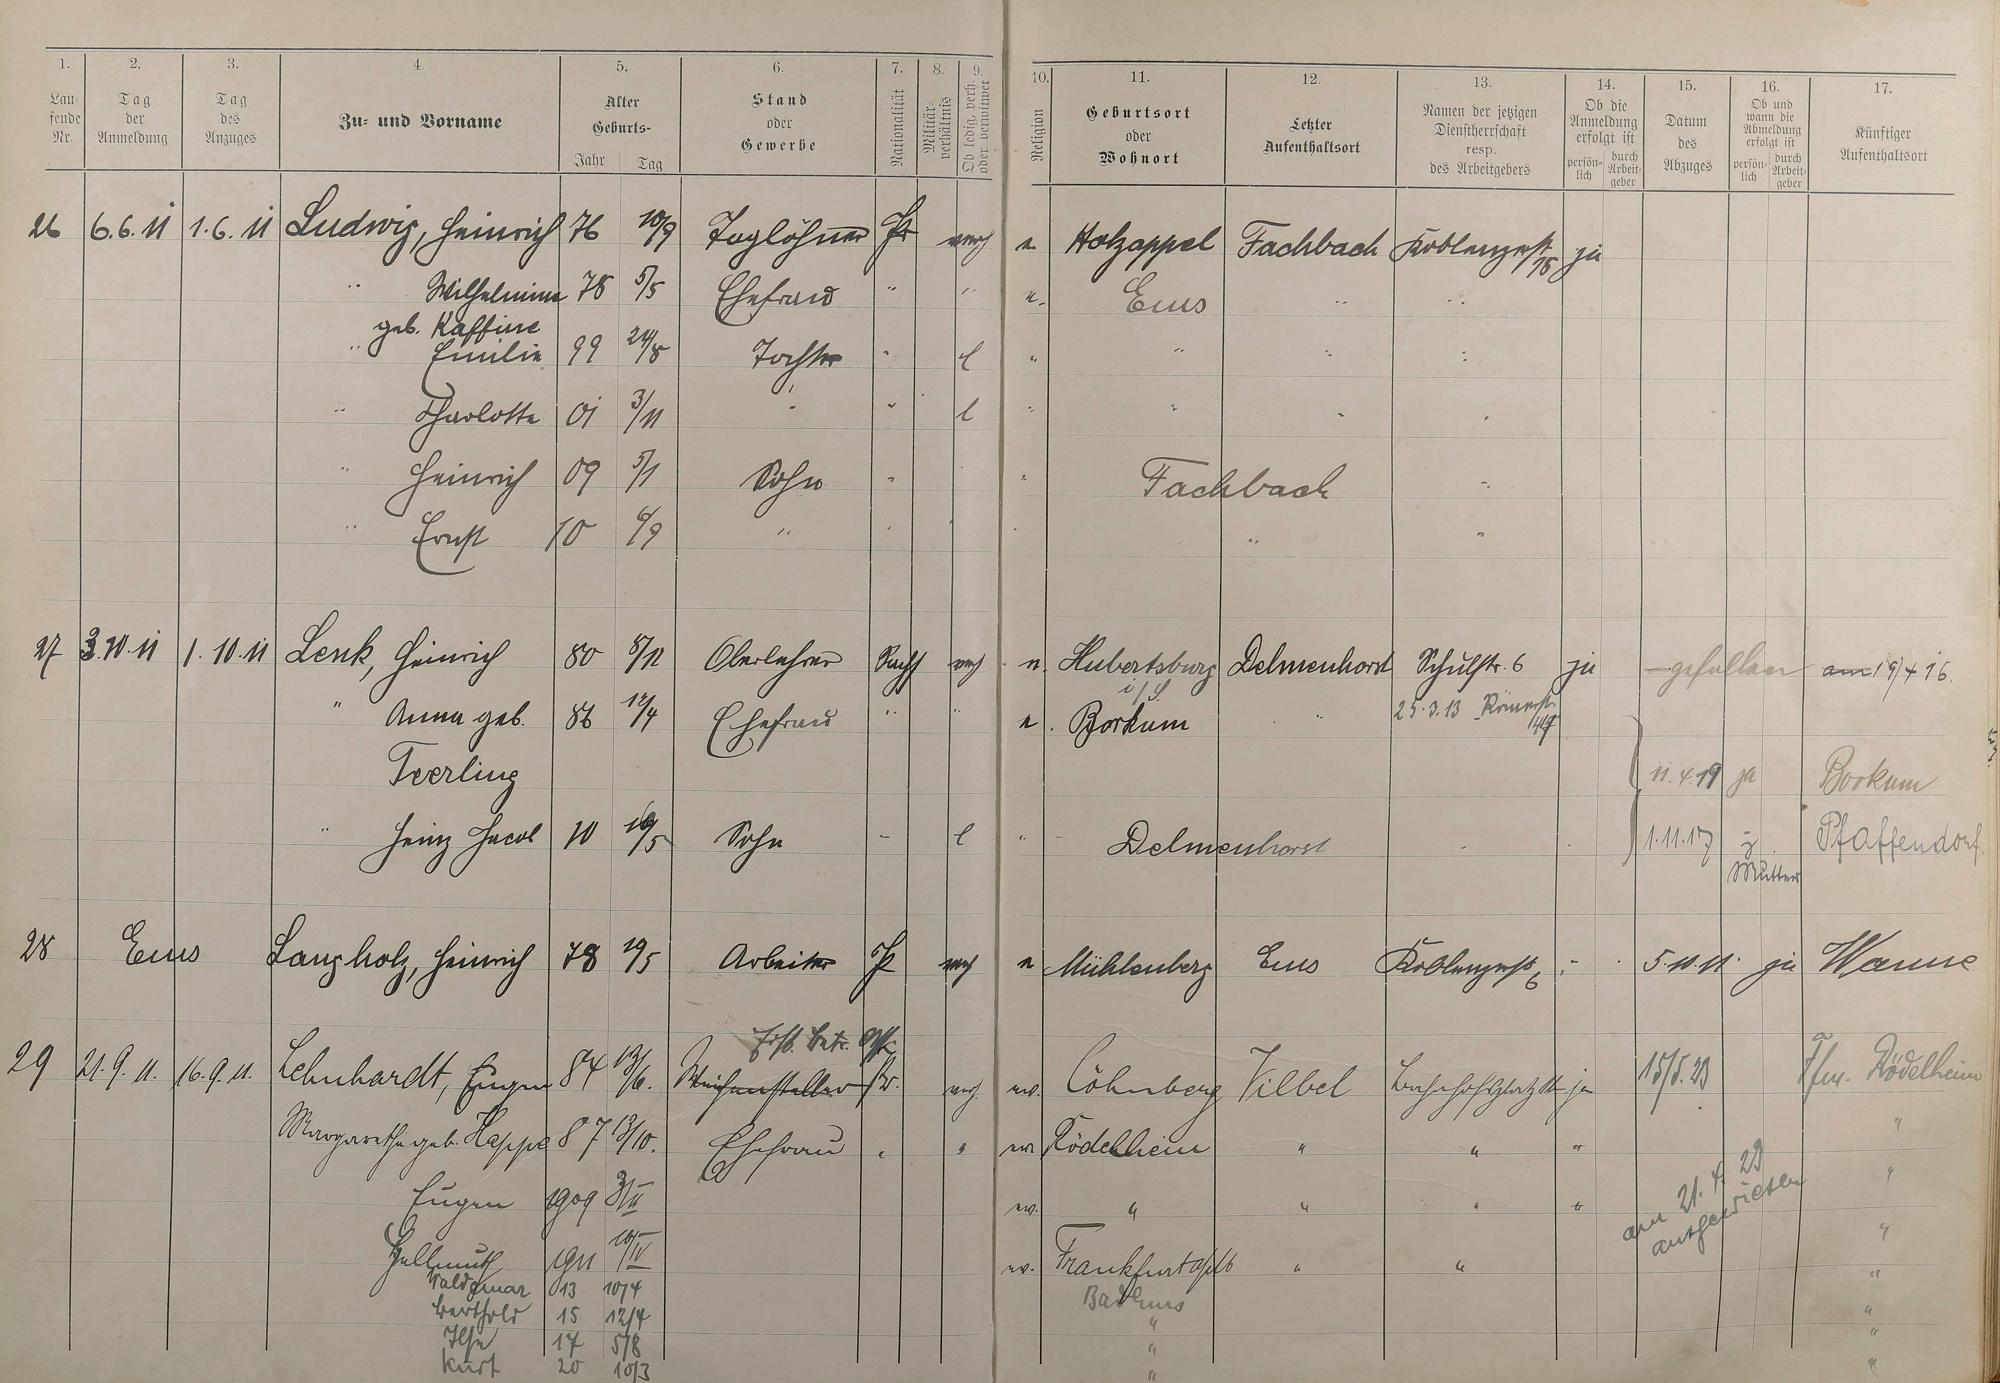 1. 2. 3. 4. 5. 6. 7. 8. 9. 10. 11. 12. 13. 14. 15. 16. 17.
Lau-
fende
Nr.
Tag
der
Anmeldung
Tag
des
Anzuges
Zu- und Vorname
Alter
Geburts-
Jahr Tag
Stand
oder
Gewerbe
Nationalität
Militär-
verhältnis
Ob ledig, verh.
oder verwitwet
Religion
Geburtsort
oder
Wohnort
Letzter
Aufenthaltsort
Namen der jetzigen
Dienstherrschaft
resp.
des Arbeitgebers
Ob die
Anmeldung
erfolgt ist
persön-
lich
durch
Arbeit-
geber
Datum
des
Abzuges
Ob und
wann die
Abmeldung
erfolgt ist
persön-
lich
durch
Arbeit-
geber
Künftiger
Aufenthaltsort
26 6.6.11 1.6.11 Ludwig, Heinrich 76 10/9 Taglöhner Pr verh e. Holzappel Fachbach Koblenzerst ja
" Wilhelmine 78 5/5 Ehefrau " " e. Ems " "
geb. Kaffine
" Emilie 99 24/8 Tochter " l " " " "
" Charlotte 01 3/11 " " l " " " "
" Heinrich 09 5/1 Sohn " " Fachbach "
" Ernst 10 6/9 " " " " "
27 3.10.11 1.10.11 Lenk, Heinrich 80 8/12 Oberlehrer Sachs verh e. Hubertsburg Delmenhorst Schulstr. 6 ja gefallen am 19/4 16.
i/S
" Anna geb. 86 12/4 Ehefrau " " e. Borkum " 25.3.13 Römerstr
Teerling 11.4.19 ja Borkum
" Heinz Jacob 10 16/5 Sohn " l " Delmenhorst " 1.11.17 z. Pfaffendorf.
Mutter
28 Ems Langholz, Heinrich 78 19/5 Arbeiter Pr verh e Mühlenberg Ems Koblenzerst 6 " 5.10.11. ja Wanne
29 21.9.11. 16.9.11. Lehnhardt, Eugen 84 13/6. Weichensteller Pr. verh. ev. Löhnberg Vilbel Bahnhofsplatz ja 15/5.23 Ffm. Rödelheim
Margarethe geb. Happe 87 13/10. Ehefrau " " ev. Rödelheim " " " "
Eugen 1909 3/II ev. " " " " "
am 21.4.23
ausgewiesen
Hellmuth 1911 10/IV ev. Frankfurt " " "
Waldemar 13 10/4 Bad Ems "
Berthold 15 12/4 " "
Ilse 17 5/8 " "
Kurt 20 10/3 " "